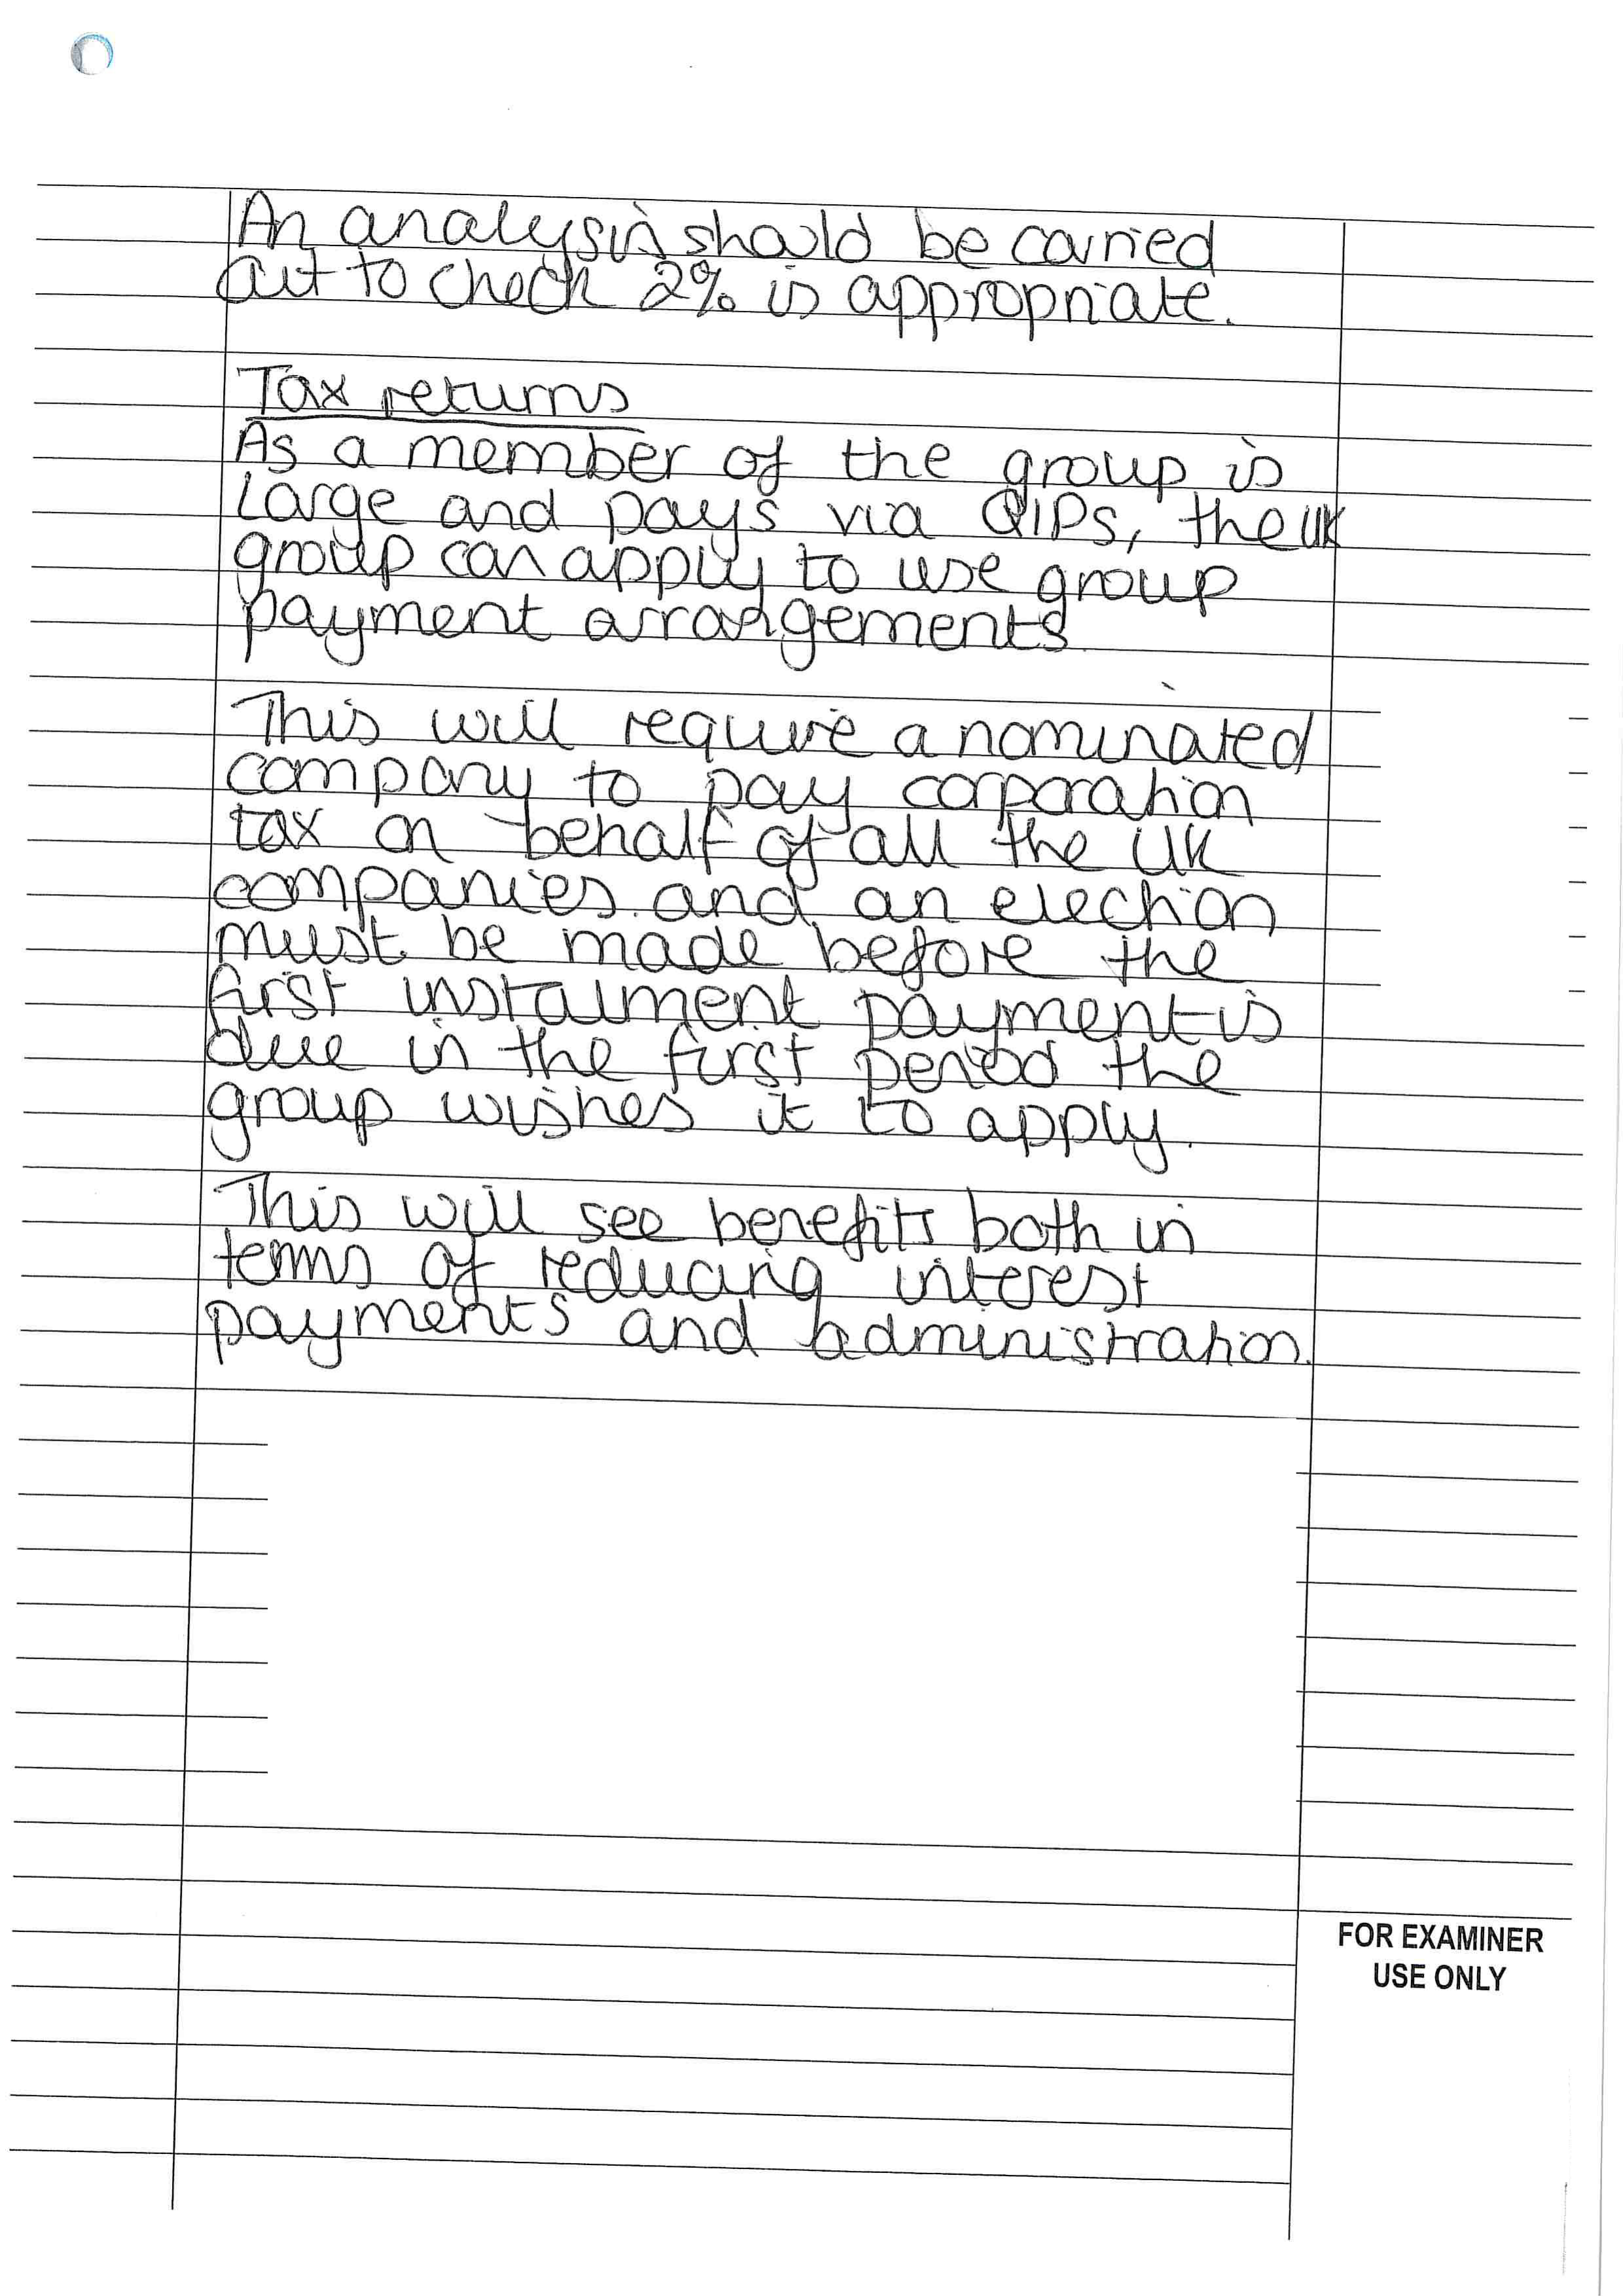 An analysis should be carried
out to check 2% is appropriate.
Tax returns
As a member of the group is
large and pays via QIPs, the UK
group can apply to use group
payment arrangements.
This will require a nominated
company to pay corporation
tax on behalf of all the UK
companies and an election
must be made before the
first instalment payment is
due in the first period the
group wishes it to apply.
This will see benefits both in
terms of reducing interest
payments and administration.
FOR EXAMINER
USE ONLY